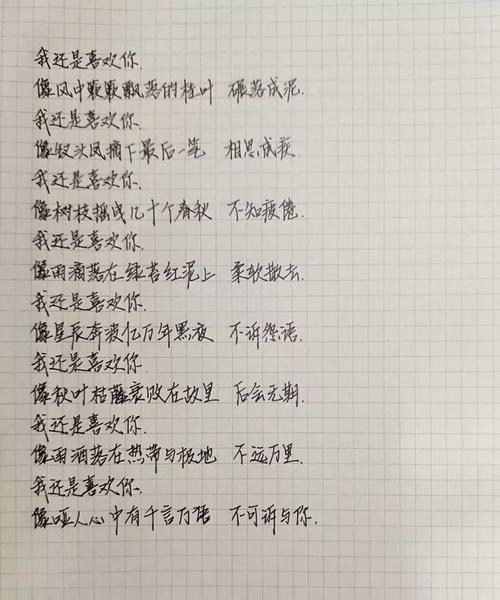 我还是喜欢你.
像风中簌簌飘落的桂叶 碾落成泥.
我还是喜欢你.
像钗头凤摘下最后一笔 相思成疾.
我还是喜欢你.
像树枝摇曳几十个春秋 不知疲倦.
我还是喜欢你.
像雨滴落在绿苔红泥上 柔软散去.
我还是喜欢你.
像星辰奔波亿万年黑夜 不诉怨语.
我还是喜欢你.
像秋叶枯藤衰败在故里 后会无期.
我还是喜欢你.
像雨洒落在热带与极地 不远万里.
我还是喜欢你.
像哑人心中有千言万语 不可诉与你.